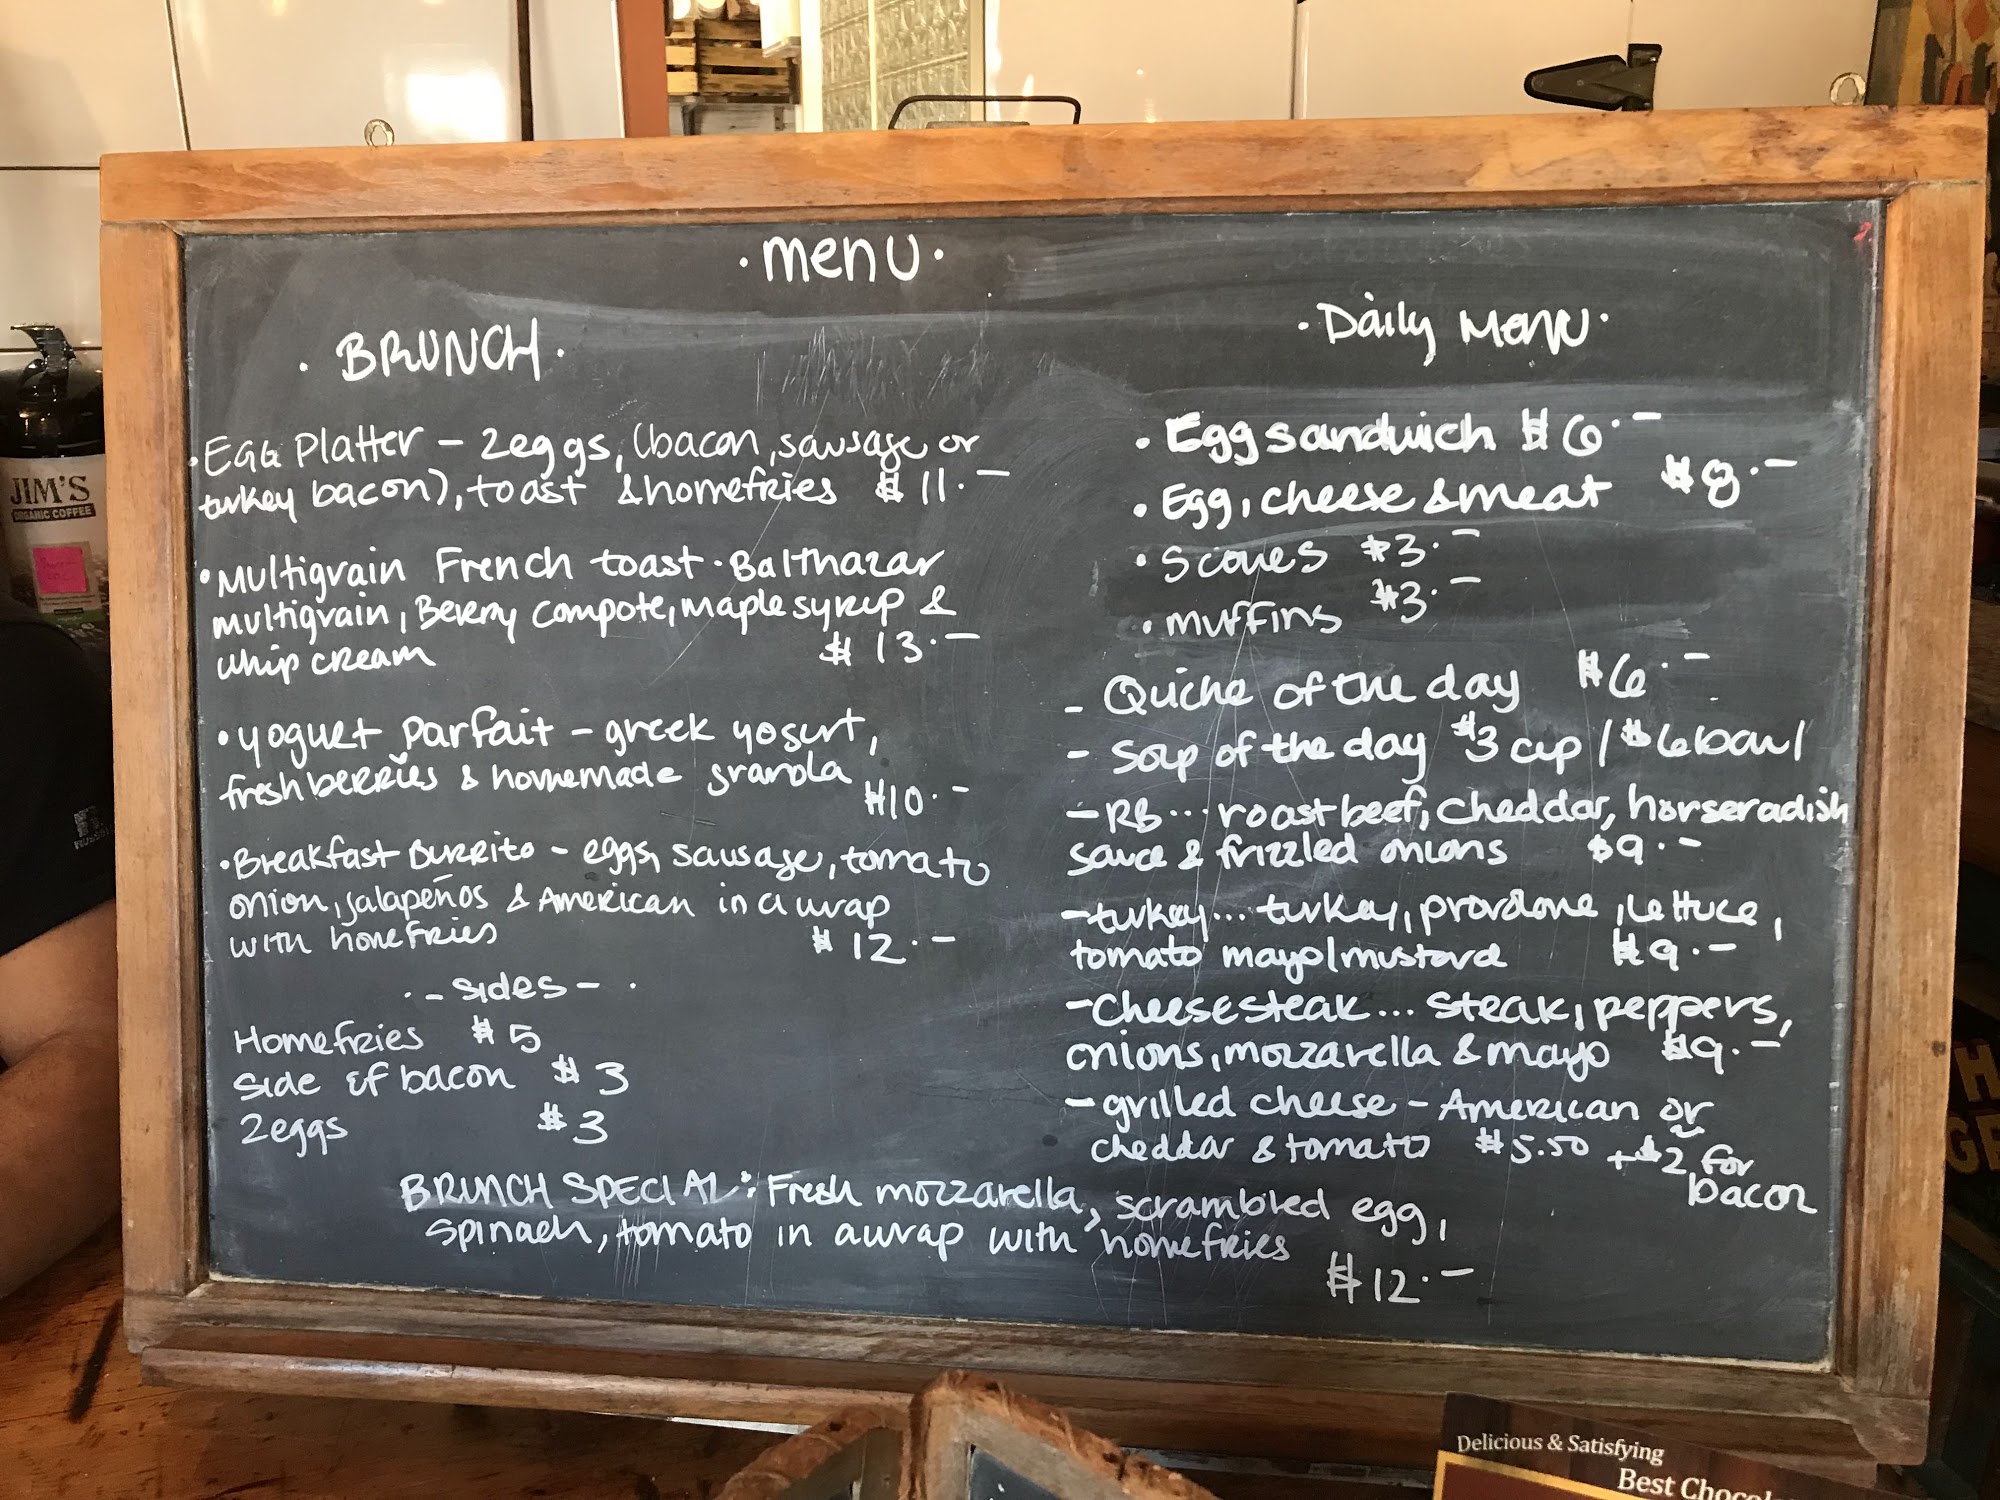 · menu ·
· BRUNCH ·
· EGG Platter – 2eggs, (bacon, sausage or
turkey bacon), toast & homefries $11.–
• Multigrain French toast · Balthazar
multigrain, Berry compote, maple syrup &
whip cream $13.–
• yogurt parfait – greek yogurt,
fresh berries & homemade granola
$10.–
• Breakfast Burrito – eggs, sausage, tomato
onion, jalapeños & American in a wrap
with homefries $12.–
· – sides – ·
Homefries $5
side of bacon $3
2eggs $3
· Daily Menu ·
• Egg sandwich $6.–
• Egg, cheese & meat $8.–
• Scones $3.–
• muffins $3.–
– Quiche of the day $6.–
– Soup of the day $3 cup / $6 bowl
– RB... roast beef, cheddar, horseradish
sauce & frizzled onions $9.–
– turkey... turkey, provolone, lettuce,
tomato mayo/mustard $9.–
– Cheesesteak... steak, peppers,
onions, mozzarella & mayo $9.–
– grilled cheese – American or
cheddar & tomato $5.50 + $2 for
bacon
BRUNCH SPECIAL: Fresh mozzarella, scrambled egg,
spinach, tomato in a wrap with homefries
$12.–
JIM'S
ORGANIC COFFEE
Delicious & Satisfying
Best